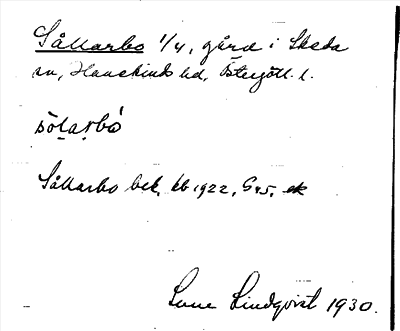 Sållarbo 1/4, gård i Skeda
sn, Hanekinds hd, Östergötl. l.
sò̀larbó
Sållarbo bek. kb 1922, G45, ek
Sune Lindqvist 1930.